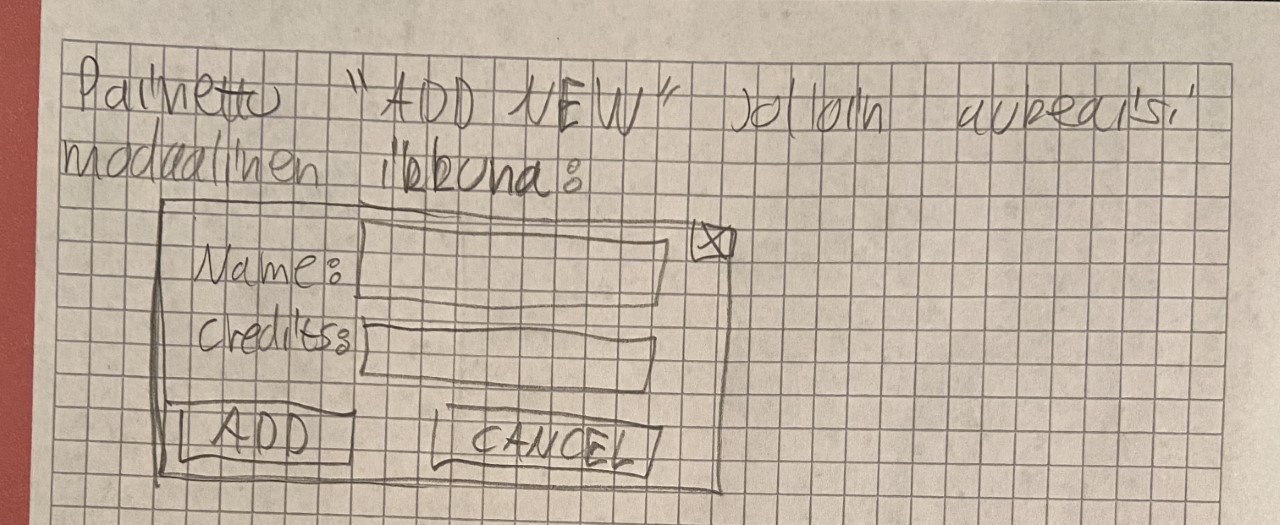 Painettu "ADD NEW" jolloin aukeaisi
modaalinen ikkuna:
X
Name:
Credits:
ADD CANCEL